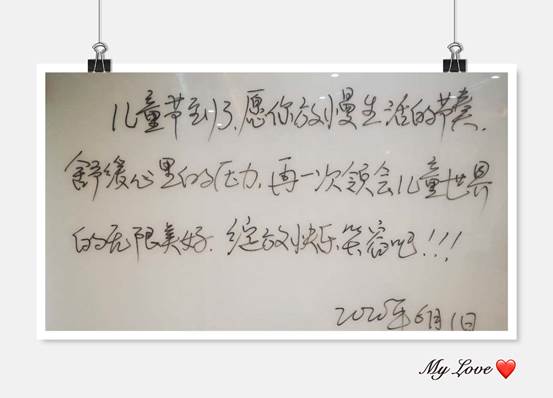 儿童节到了,愿你放慢生活的节奏,
舒缓心里的压力,再一次领会儿童世界
的无限美好,绽放快乐笑容吧!!!
2020年6月1日
My Love